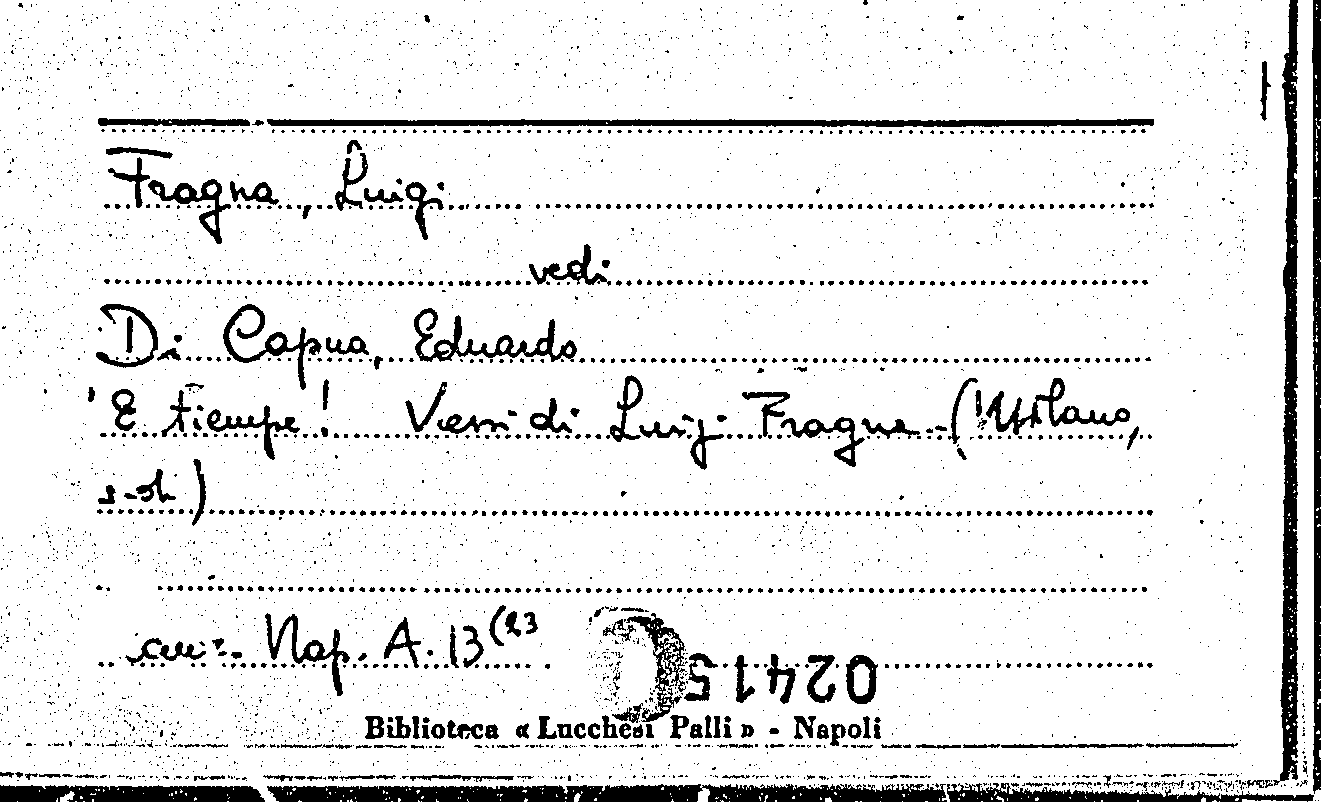 Fragna, Luigi
vedi
Di Capua, Eduardo
'E tiempe! Versi di Luigi Fragna - (Milano,
canz. Nap. A. 13 (23
02415
Biblioteca « Lucchesi Palli » - Napoli